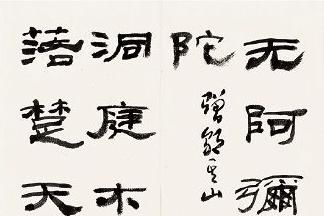 无阿彌
陀
贈 山
洞庭木
落楚天